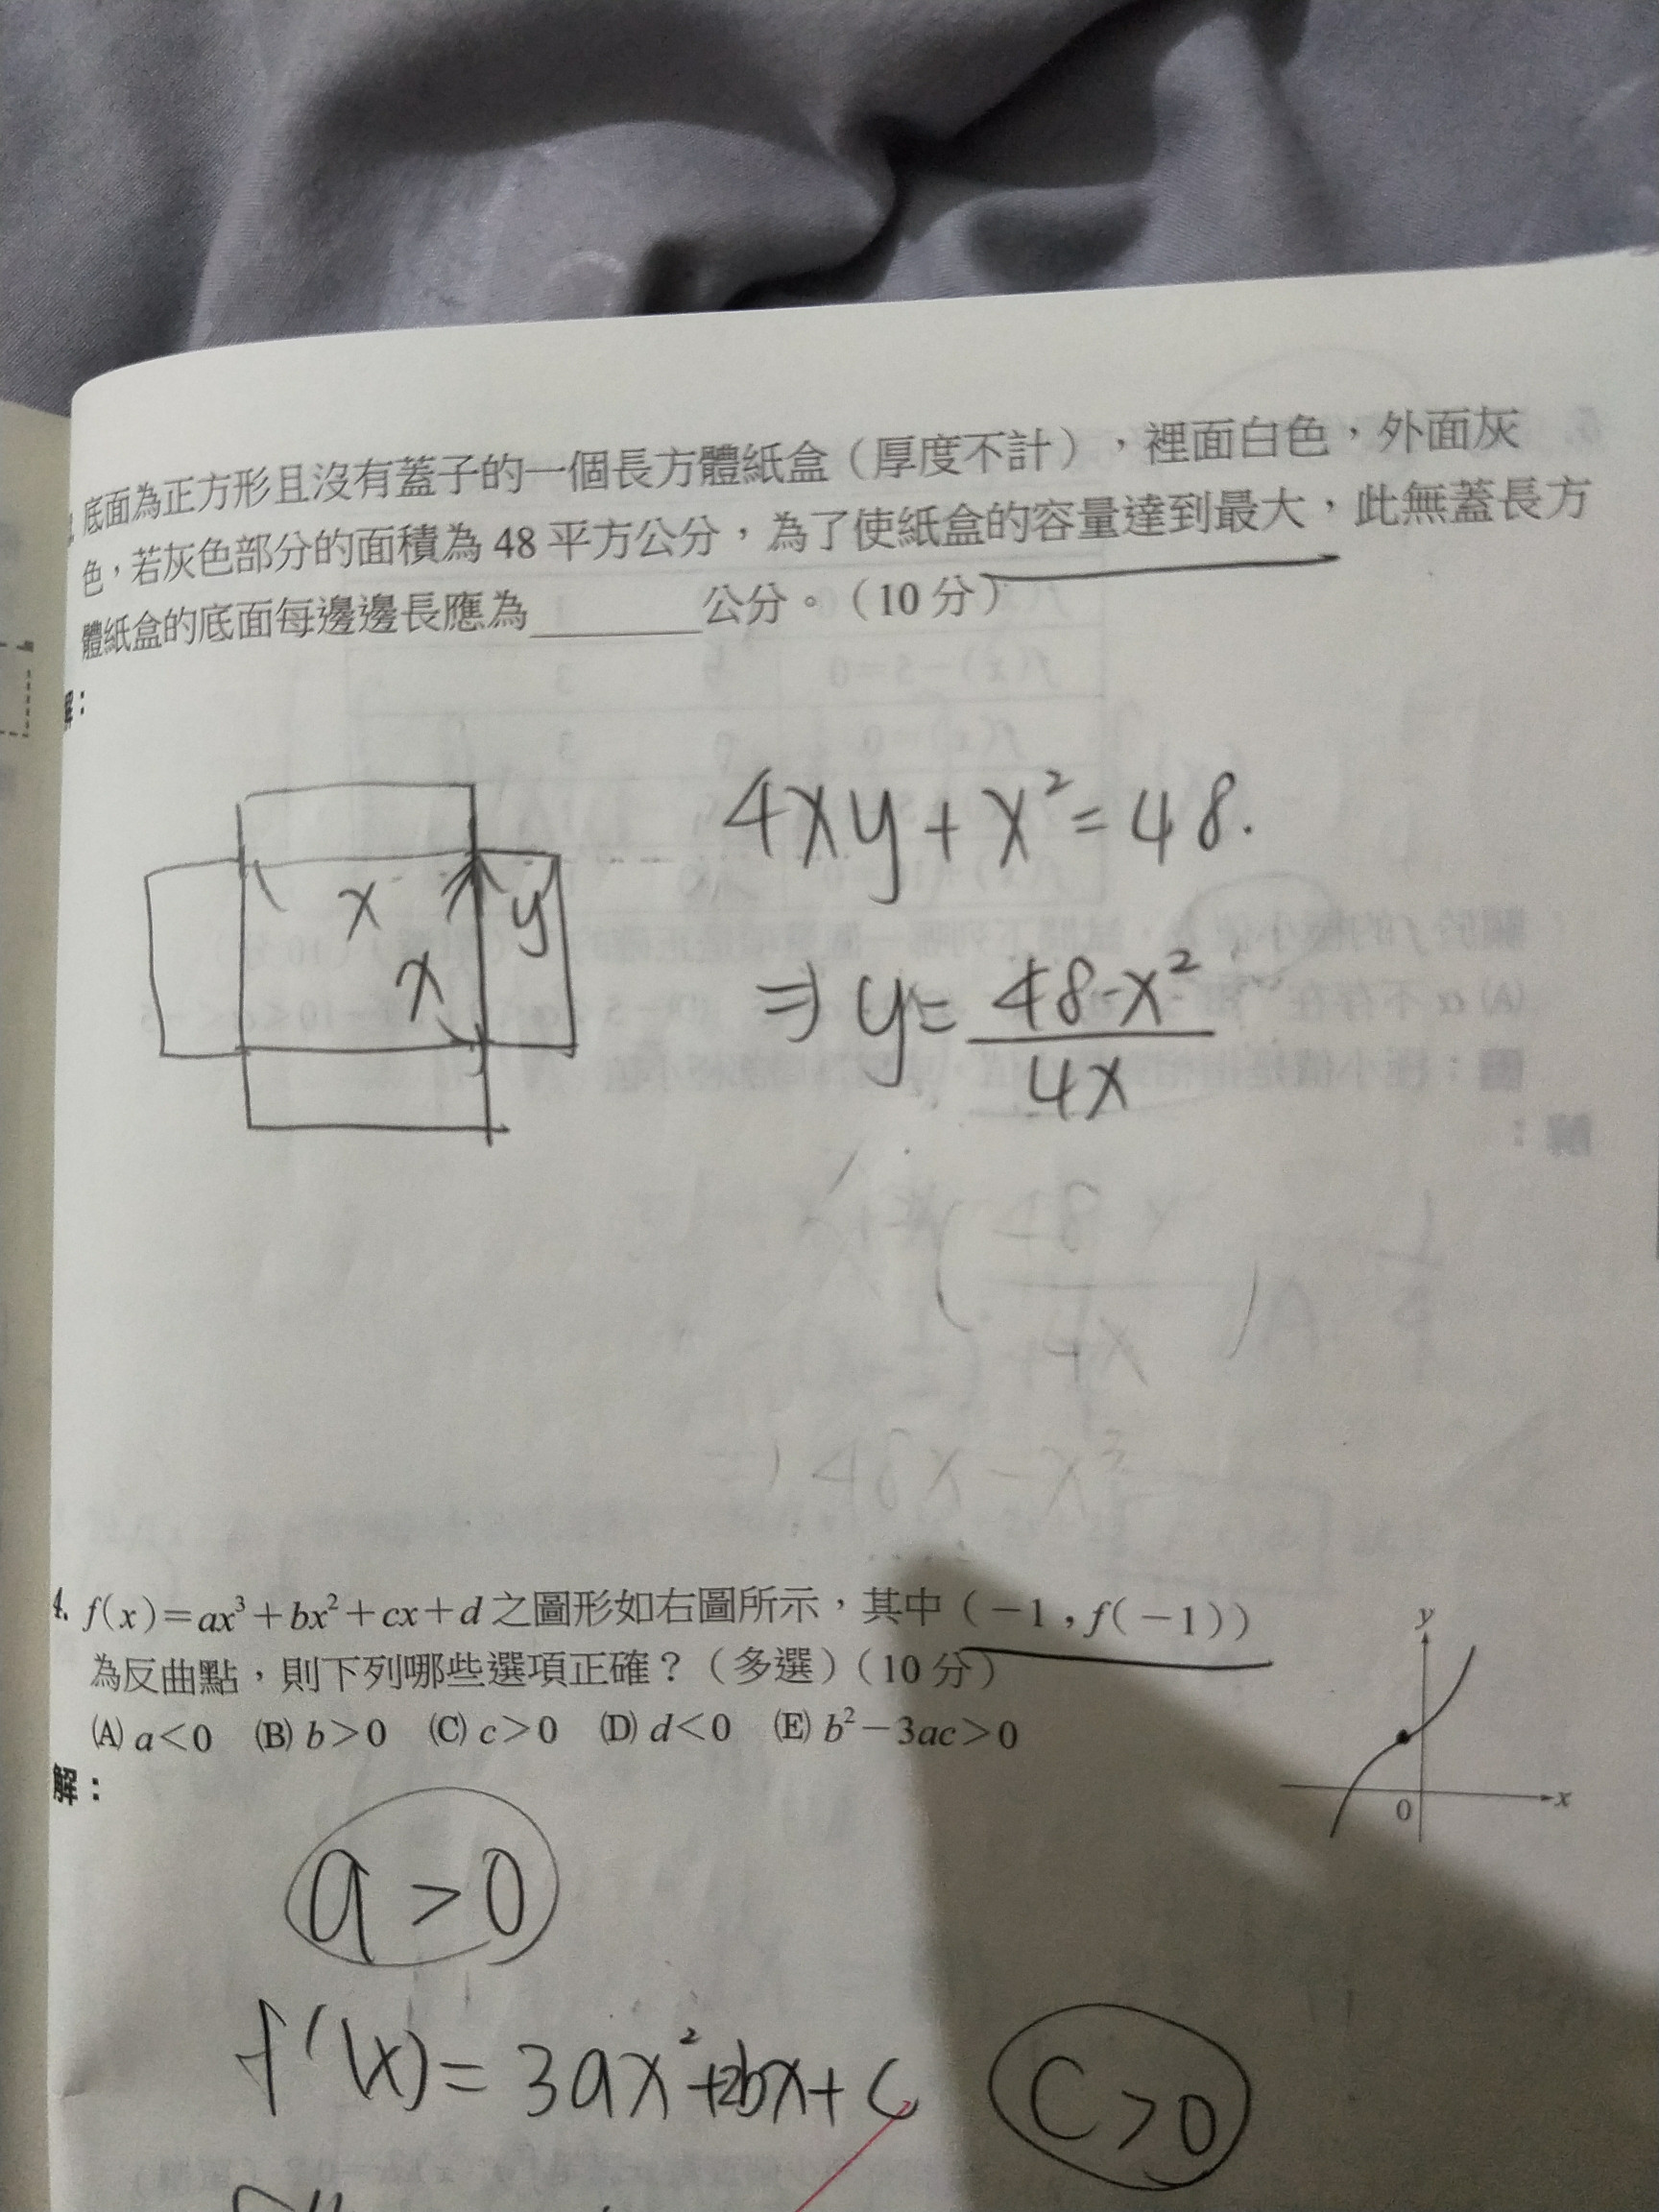 底面為正方形且沒有蓋子的一個長方體紙盒（厚度不計），裡面白色，外面灰
色，若灰色部分的面積為 48 平方公分，為了使紙盒的容量達到最大，此無蓋長方
體紙盒的底面每邊邊長應為________公分。（10 分）
解：
x
x
y
4xy+x²=48.
⇒ y= (48-x²)/(4x)
4. f(x)=ax³+bx²+cx+d 之圖形如右圖所示，其中（-1，f(-1)）
為反曲點，則下列哪些選項正確？（多選）（10 分）
(A) a<0 (B) b>0 (C) c>0 (D) d<0 (E) b²-3ac>0
y
x
0
解：
a>0
f'(x)=3ax²+2bx+c
c>0